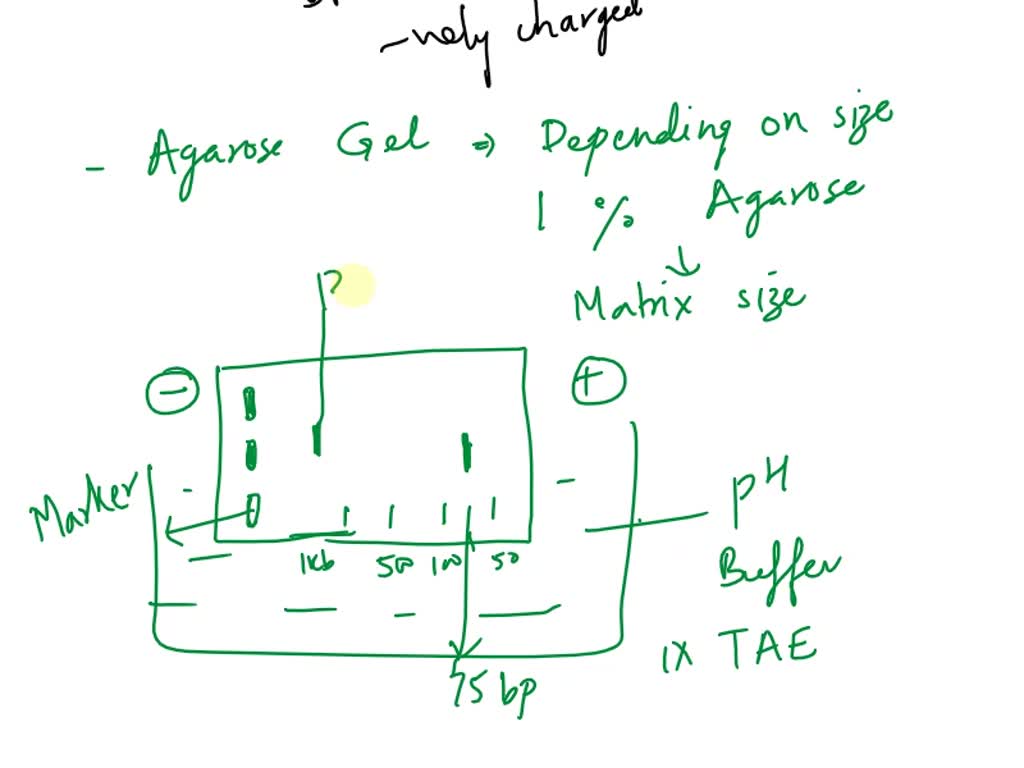 -vely charged
- Agarose Gel ⇒ Depending on size
1 % Agarose
↓
Matrix size
- +
Marker
pH
Buffer
1X TAE
1kb 500 100 50
75 bp